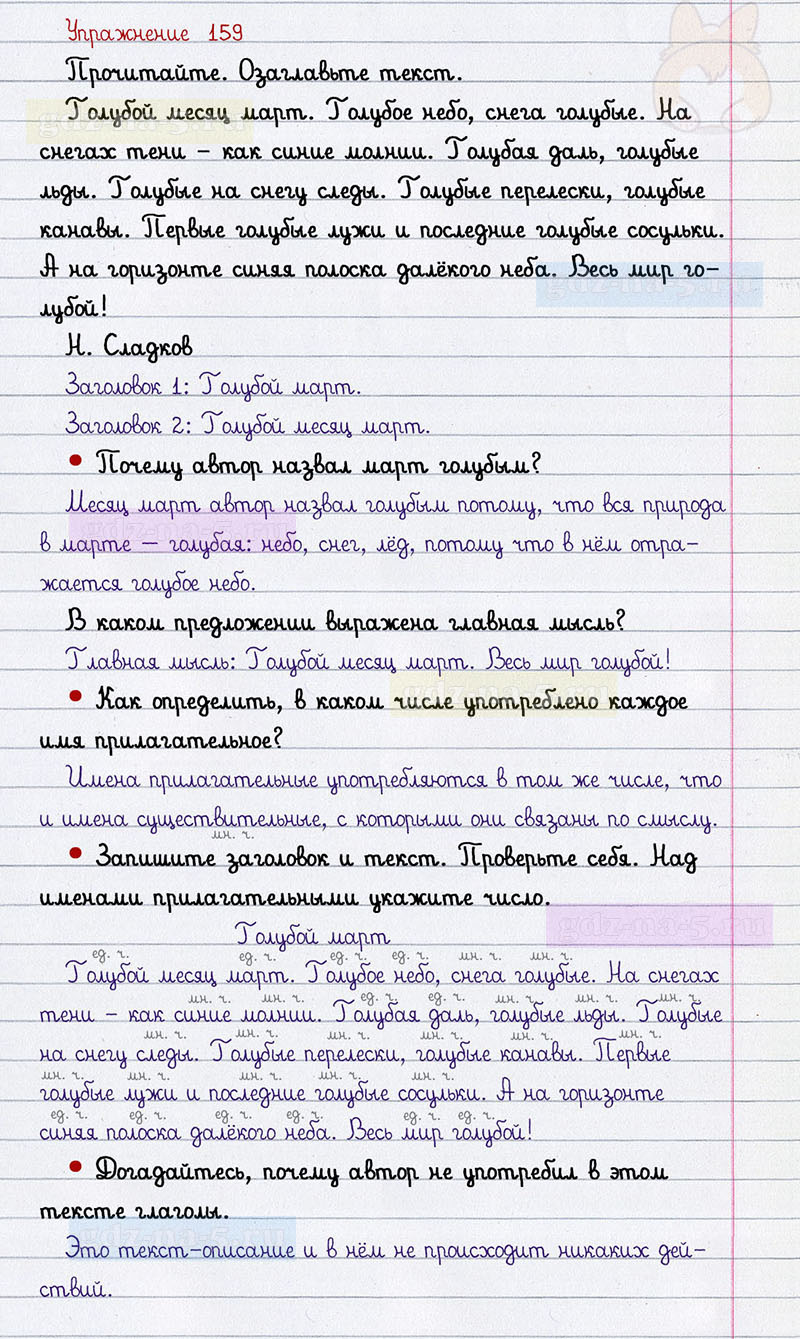 Упражнение 159
Прочитайте. Озаглавьте текст.
Голубой месяц март. Голубое небо, снега голубые. На
gdz-na-5.ru
снегах тени – как синие молнии. Голубая даль, голубые
льды. Голубые на снегу следы. Голубые перелески, голубые
канавы. Первые голубые лужи и последние голубые сосульки.
А на горизонте синяя полоска далёкого неба. Весь мир го–
gdz-na-5.ru
лубой!
Н. Сладков
Заголовок 1: Голубой март.
Заголовок 2: Голубой месяц март.
• Почему автор назвал март голубым?
Месяц март автор назвал голубым потому, что вся природа
gdz-na-5.ru
в марте – голубая: небо, снег, лёд, потому что в нём отра–
жается голубое небо.
В каком предложении выражена главная мысль?
Главная мысль: Голубой месяц март. Весь мир голубой!
gdz-na-5.ru
• Как определить, в каком числе употреблено каждое
имя прилагательное?
Имена прилагательные употребляются в том же числе, что
и имена существительные, с которыми они связаны по смыслу.
мн. ч.
• Запишите заголовок и текст. Проверьте себя. Над
именами прилагательными укажите число.
gdz-na-5.ru
Голубой март
ед. ч. ед. ч. ед. ч. ед. ч. мн. ч. мн. ч.
Голубой месяц март. Голубое небо, снега голубые. На снегах
мн. ч. мн. ч. ед. ч. ед. ч. мн. ч. мн. ч. мн. ч.
тени – как синие молнии. Голубая даль, голубые льды. Голубые
мн. ч. мн. ч. мн. ч. мн. ч. мн. ч. мн. ч.
на снегу следы. Голубые перелески, голубые канавы. Первые
мн. ч. мн. ч. мн. ч. мн. ч. мн. ч.
голубые лужи и последние голубые сосульки. А на горизонте
ед. ч. ед. ч. ед. ч. ед. ч. ед. ч. ед. ч.
синяя полоска далёкого неба. Весь мир голубой!
• Догадайтесь, почему автор не употребил в этом
тексте глаголы.
gdz-na-5.ru
Это текст-описание и в нём не происходит никаких дей–
ствий.